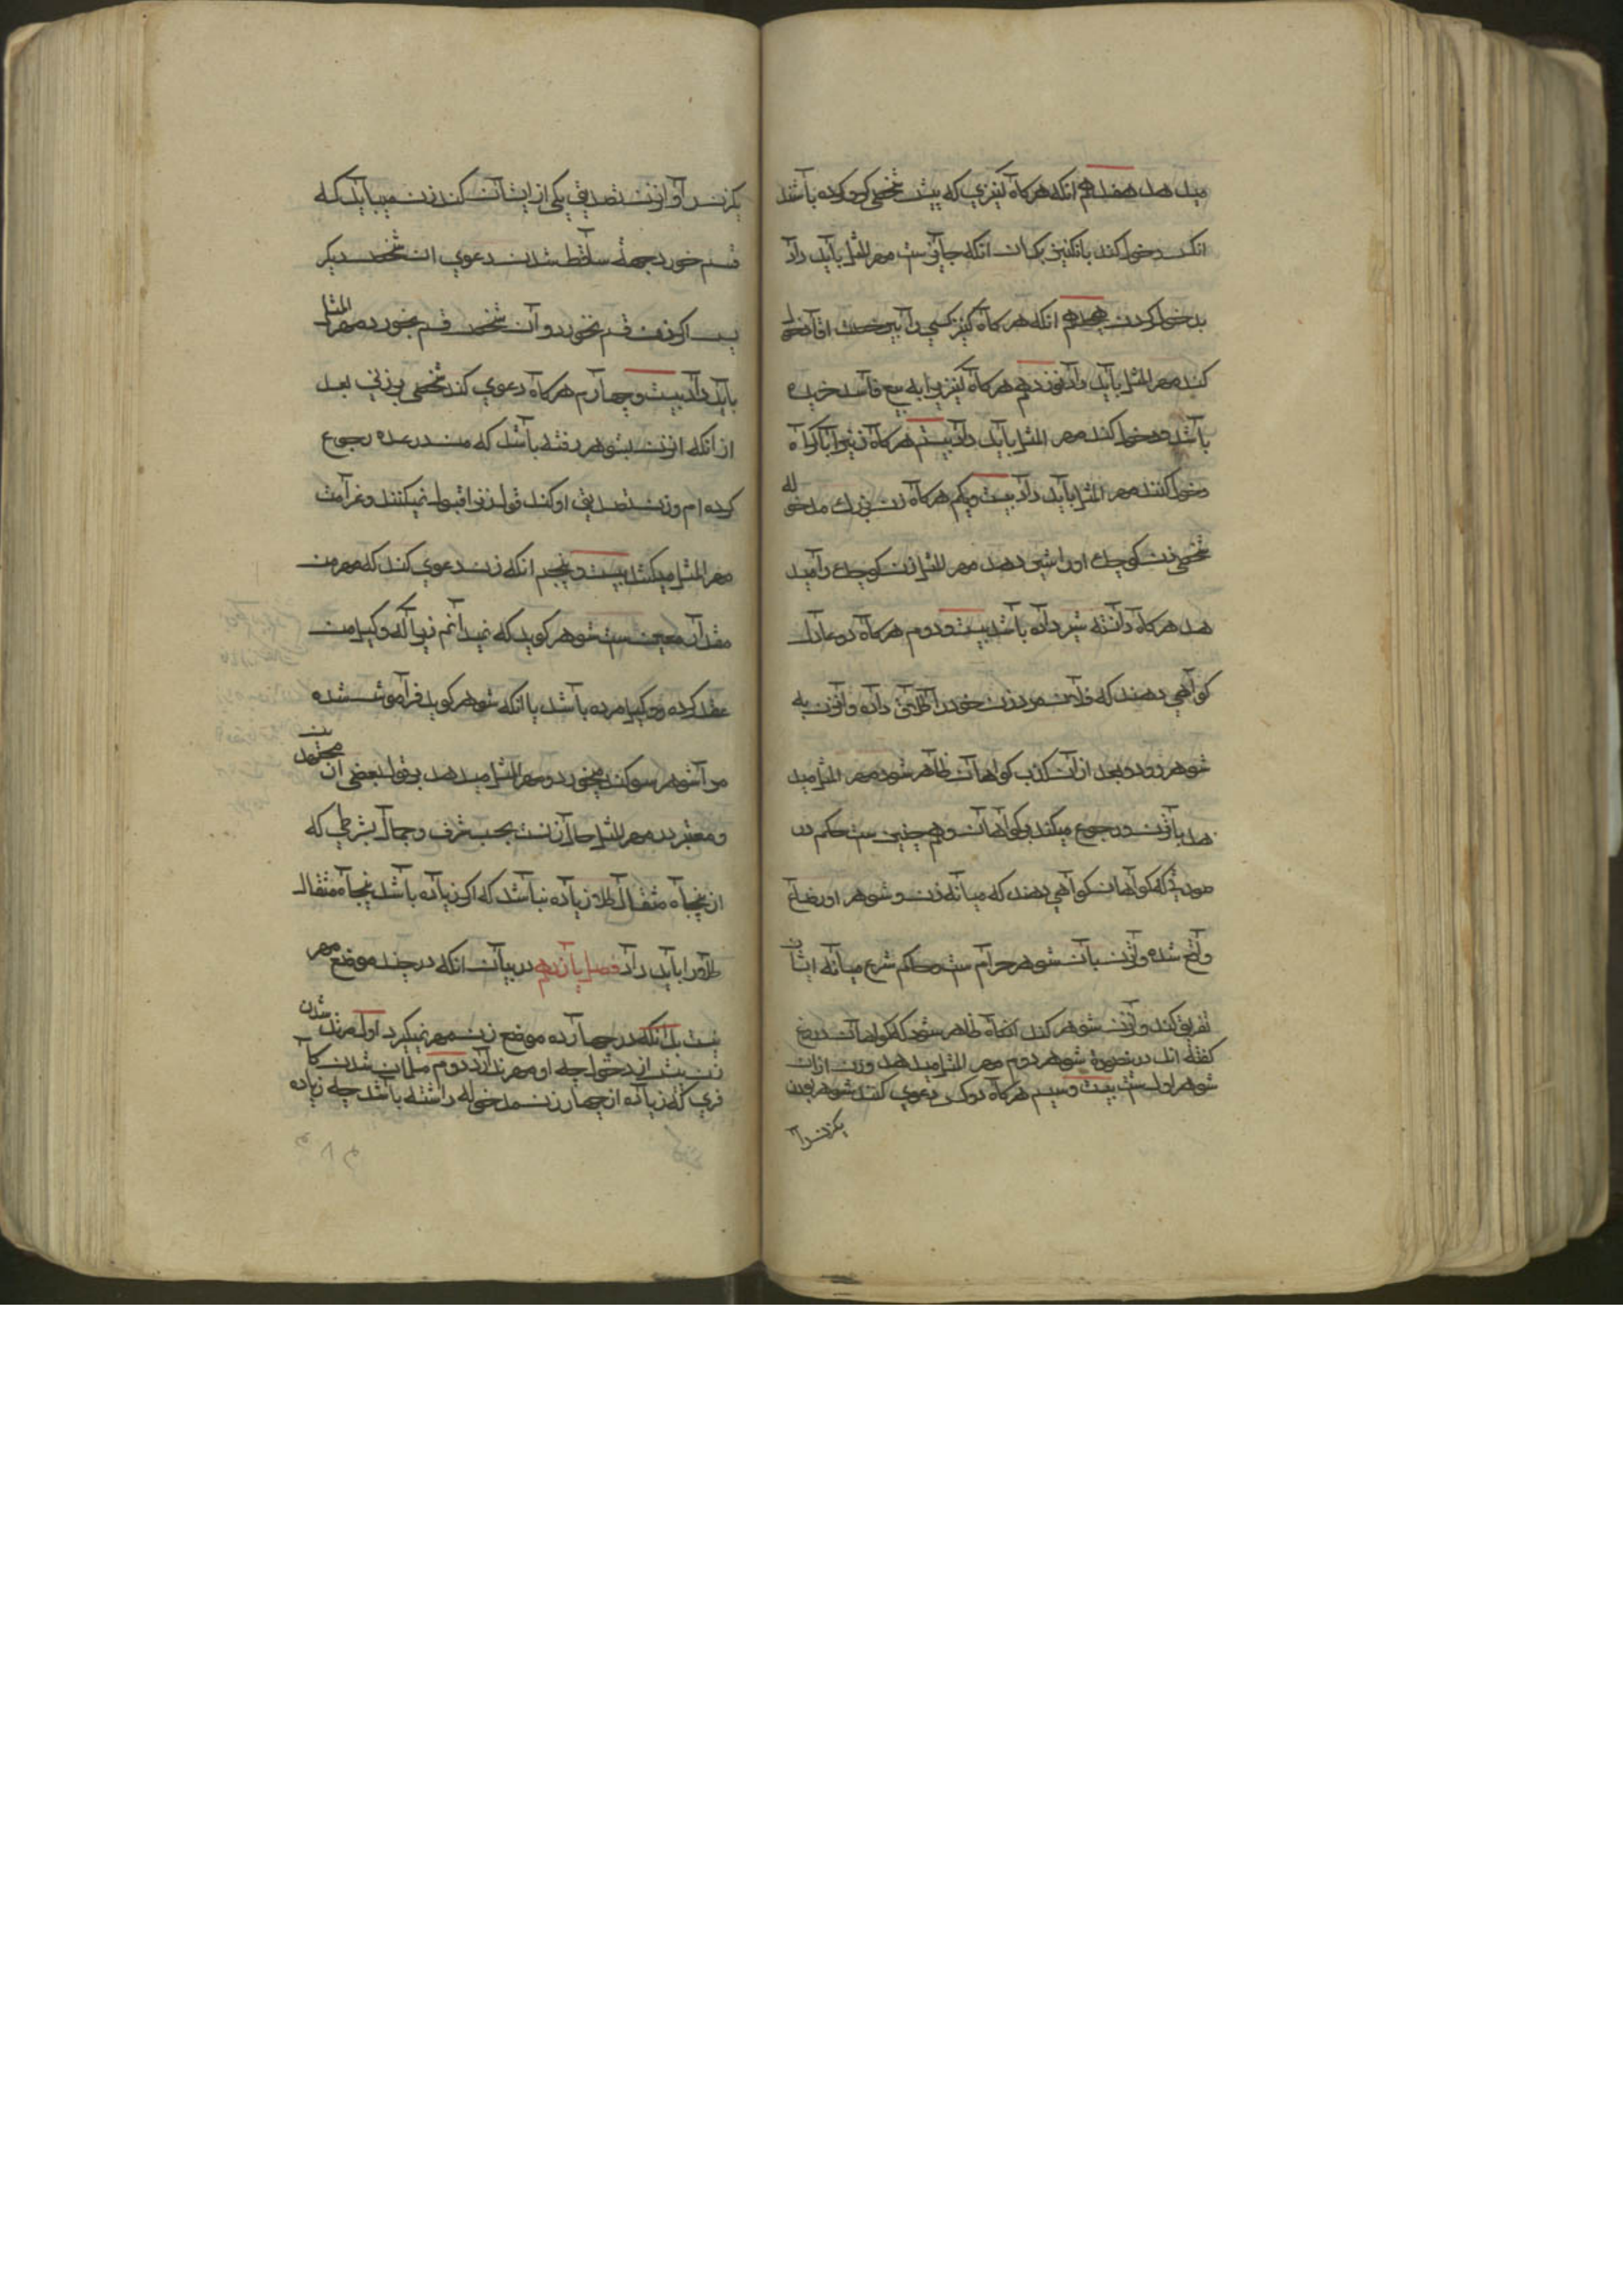 میدهد هفدهم انکه هرکاه کنیزی که پیش شخصی کرو کرده باشد
انکس دخول کند بانکنیز بکمان انکه جایزست مهر المثل باید داد
بدخول کردن هجدهم انکه هرکاه کنیز کسی را بیرخصت اقا دخول
کند مهر المثل باید داد نوزدهم هرکاه کنیزیرا به بیع فاسد خریده
باشد و دخول کند مهر المثل باید داد بیستم هرکاه زنیرا باکراه
دخول کنند مهر المثل باید داد بیست و یکم هرکاه زن بزرك مدخوله
شخصی زن کوچك او را شیر دهد مهر المثل زن کوچك را مید
هد هرکاه دانسته شیر داده باشد بیست و دوم هرکاه دو عادل
کواهی دهند که فلان مرد زن خود را طلاق داده و انزن به
شوهر رود و بعد از ان کذب کواهان ظاهر شود مهر المثل مید
هد بانزن و رجوع میکند بکواهان و همچنین ست حکم در
صورتیکه کواهان کواهی دهند که میانه زن و شوهر او رضاع
واقع شده و انزن بان شوهر حرام ست و حاکم شرع میانه ایشان
تفریق کند و انزن شوهر کند انکاه ظاهر شود که کواهان دروغ
کفته اند درینصورة شوهر دوم مهر المثل میدهد و زن ازان
شوهر اولست بیست و سیم هرکاه دو کس دعوی کنند شوهر بودن
یکزنرا
یکزنرا و انزن تصدیق یکی از ایشان کند زن میباید که
قسم خورد بجهة ساقط شدن دعوی ان شخص دیکر
پس اکر زن قسم نخورد و ان شخص قسم بخورد مهر المثل
باید داد بیست و چهارم هرکاه دعوی کند شخصی بر زنی بعد
از انکه انزن بشوهر رفته باشد که من در عده رجوع
کرده ام و زن تصدیق او کند قول زنرا قبول نمیکنند و غرامت
مهر المثل میکشد بیست و پنجم انکه زن دعوی کند که مهر من
مقدار معین ست شوهر کوید که نمیدانم زیرا که وکیل من
عقد کرده و وکیل مرده باشد یا انکه شوهر کوید فراموش شده
مرا شوهر سوکند میخورد و مهر المثل میدهد بر قول بعضی از مجتهدین
و معتبر در مهر المثل حال زنست بحسب شرف و جمال بشرطی که
از پنجاه مثقال طلا زیاده نباشد که اکر زیاده باشد پنجاه مثقال
طلا را باید داد فصل یازدهم در بیان انکه در چند موضع مهر
نیست بدانکه در چهارده موضع زن مهر نمیکیرد اول مرتد شدن
زن پیش از دخول چه او مهر ندارد دوم مسلمان شدن کا
فری که زیاده از چهار زن مدخوله داشته باشد چه زیاده